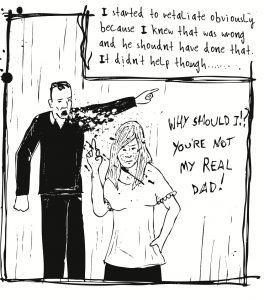 I started to retaliate obviously
because I knew that was wrong
and he shouldnt have done that.
It didn't help though........
WHY SHOULD I!?
YOU'RE NOT
MY REAL
DAD!